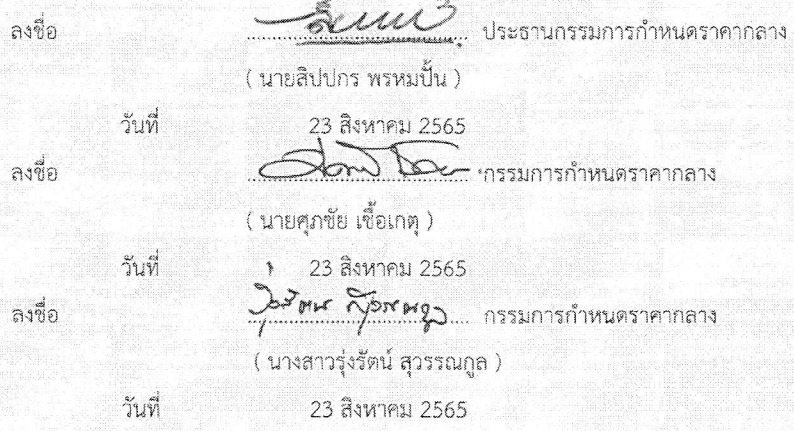 ลงชื่อ ประธานกรรมการกำหนดราคากลาง
( นายสิปปกร พรหมปั้น )
วันที่ 23 สิงหาคม 2565
ลงชื่อ กรรมการกำหนดราคากลาง
( นายศุภชัย เชื้อเกตุ )
วันที่ 23 สิงหาคม 2565
ลงชื่อ รุ่งรัตน์ สุวรรณกูล กรรมการกำหนดราคากลาง
( นางสาวรุ่งรัตน์ สุวรรณกูล )
วันที่ 23 สิงหาคม 2565